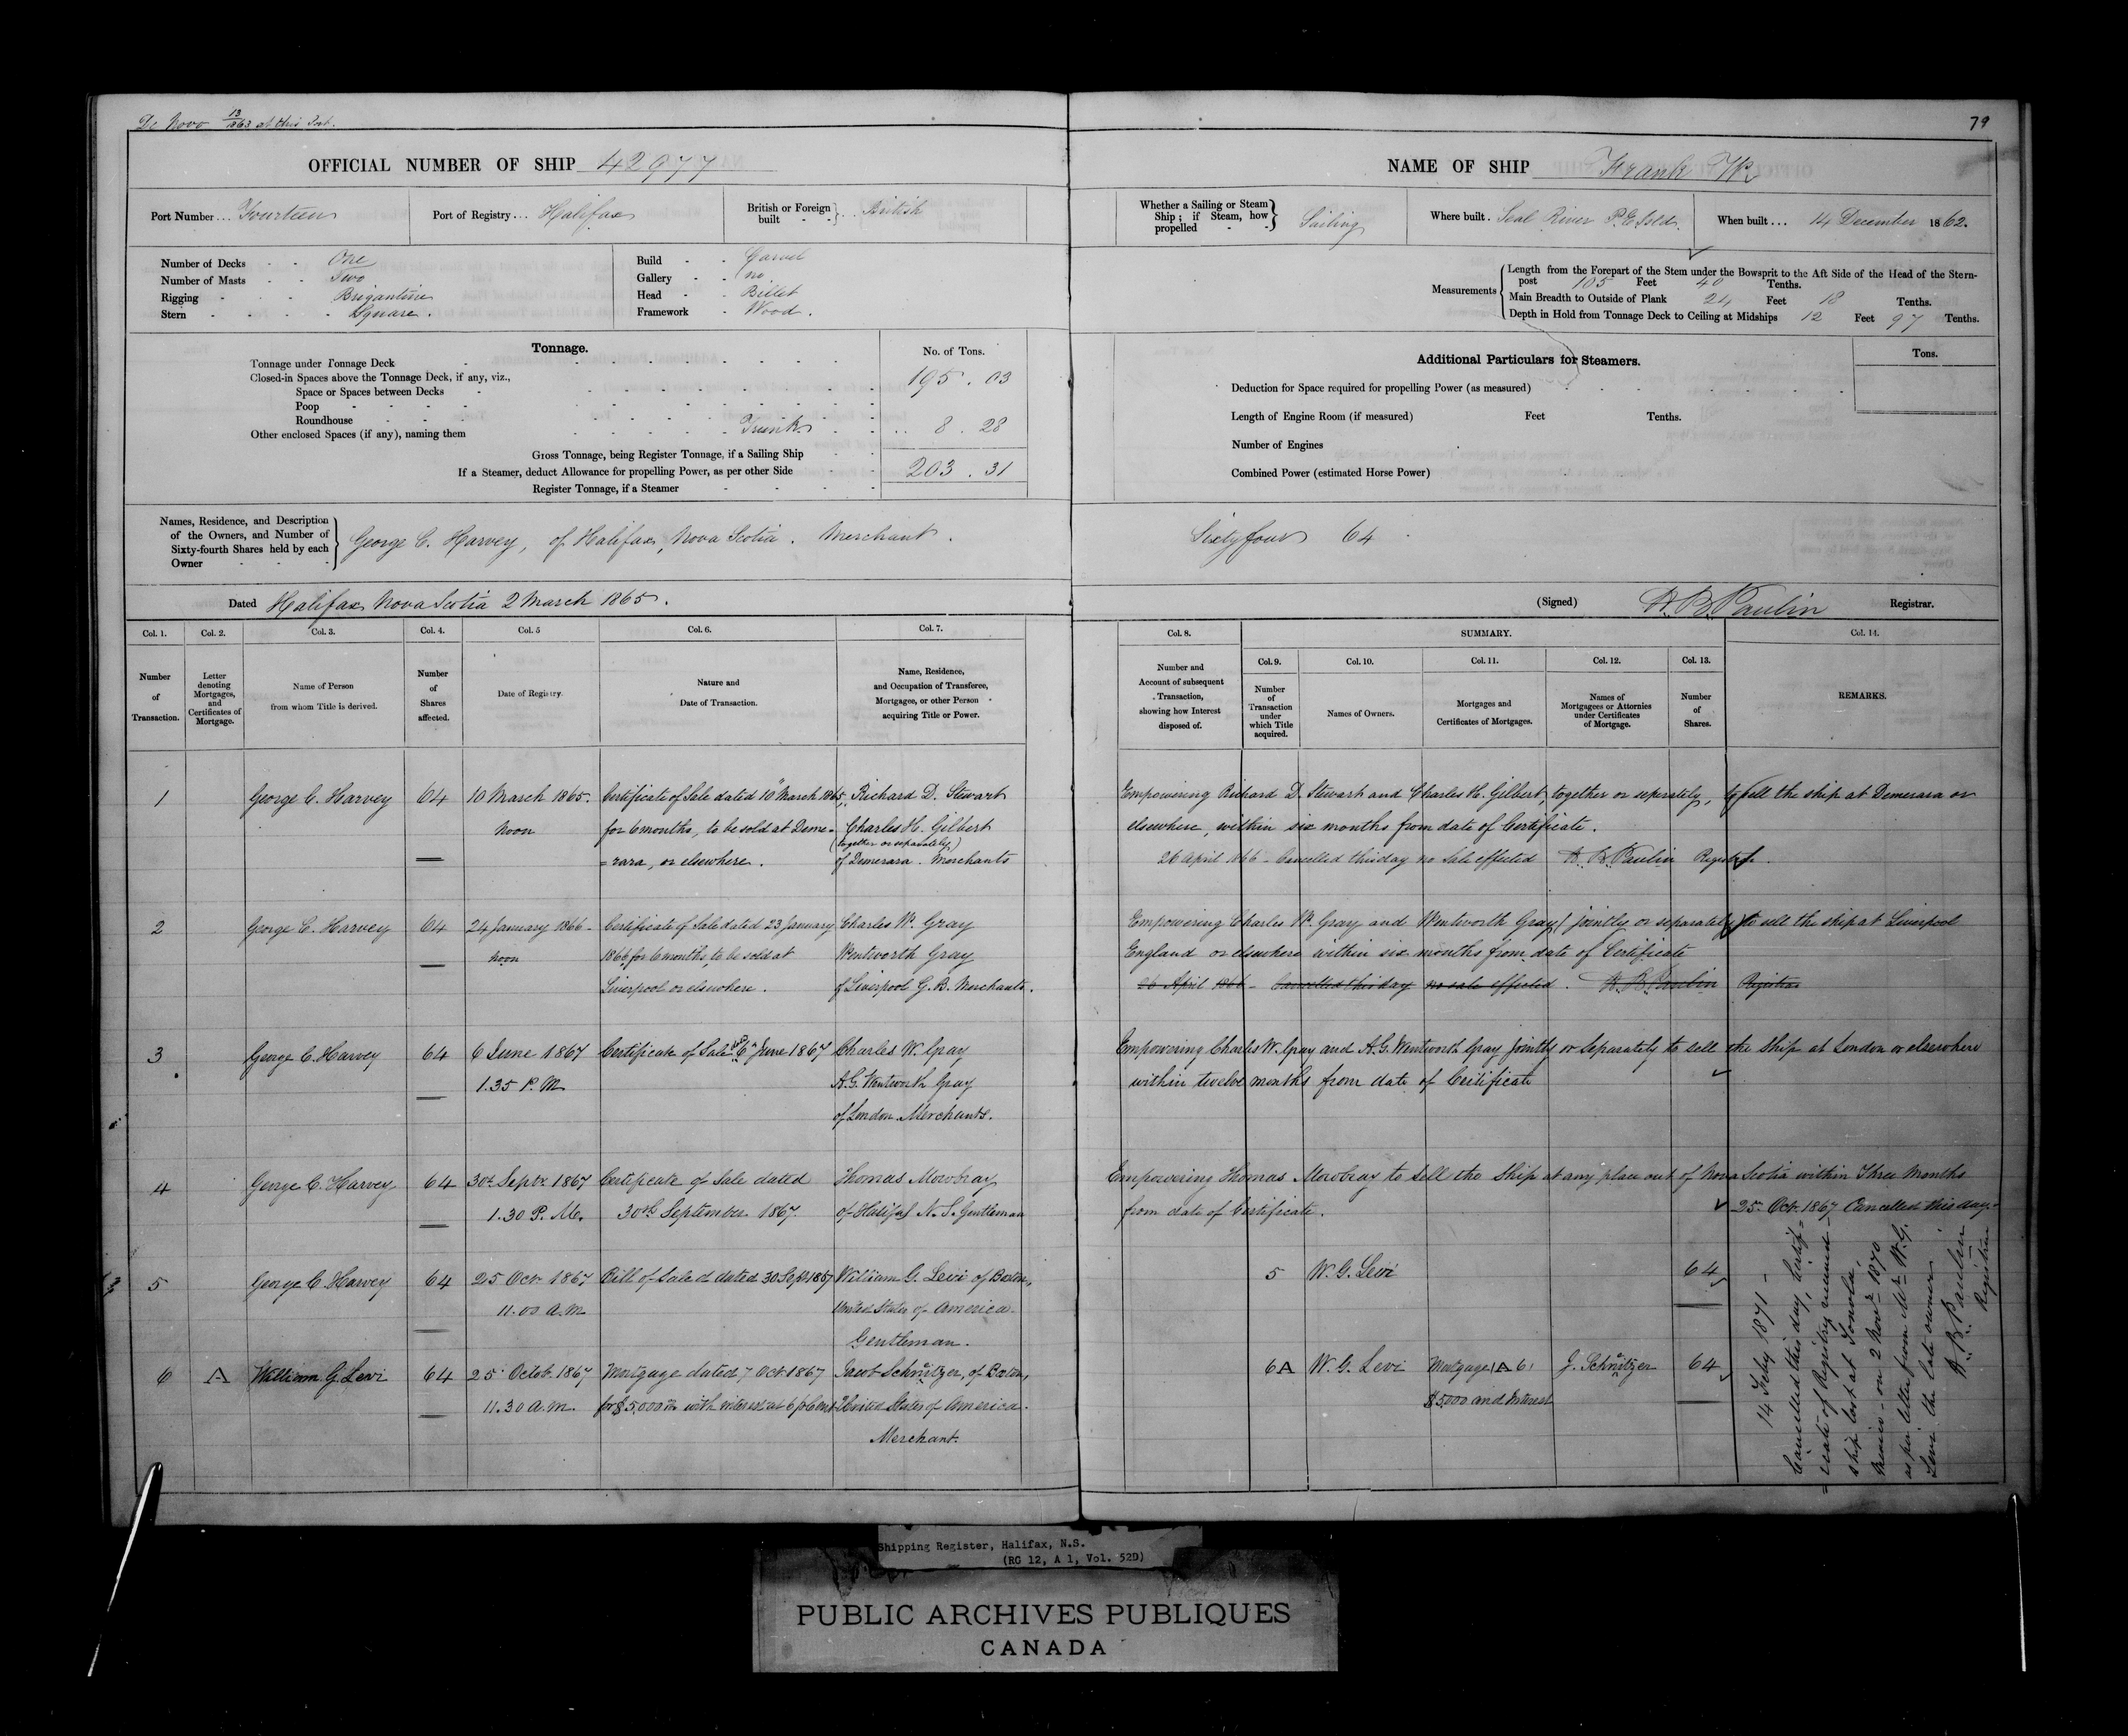 De Novo 12/1863 at this Port.
79
OFFICIAL NUMBER OF SHIP 42977
NAME OF SHIP Frank W.
Port Number... Fourteen
Port of Registry... Halifax
British or Foreign built } .. British
Whether a Sailing or Steam Ship; if Steam, how propelled } Sailing
Where built. Seal River P. E. Isld.
When built... 14 December 1862.
Number of Decks One
Number of Masts Two
Rigging Brigantine
Stern Square.
Build Carvel
Gallery no
Head Billet
Framework Wood.
Measurements
Length from the Forepart of the Stem under the Bowsprit to the Aft Side of the Head of the Stern-
post 105 Feet 40 Tenths.
Main Breadth to Outside of Plank 24 Feet 18 Tenths.
Depth in Hold from Tonnage Deck to Ceiling at Midships 12 Feet 97 Tenths.
Tonnage.
No. of Tons.
Tonnage under Tonnage Deck
Closed-in Spaces above the Tonnage Deck, if any, viz., 195. 03
Space or Spaces between Decks
Poop
Roundhouse
Other enclosed Spaces (if any), naming them Trunk .. 8. 28
Gross Tonnage, being Register Tonnage, if a Sailing Ship
If a Steamer, deduct Allowance for propelling Power, as per other Side 203. 31
Register Tonnage, if a Steamer
Additional Particulars for Steamers.
Tons.
Deduction for Space required for propelling Power (as measured)
Length of Engine Room (if measured) Feet Tenths.
Number of Engines
Combined Power (estimated Horse Power)
Names, Residence, and Description
of the Owners, and Number of
Sixty-fourth Shares held by each
Owner
George C. Harvey, of Halifax, Nova Scotia. Merchant.
Sixty four 64
Dated Halifax Nova Scotia 2 March 1865.
(Signed) H. B. Paulin Registrar.
Col. 1. Col. 2. Col. 3. Col. 4. Col. 5 Col. 6. Col. 7.
Col. 8. SUMMARY. Col. 14.
Col. 9. Col. 10. Col. 11. Col. 12. Col. 13.
Number of Transaction.
Letter denoting Mortgages, and Certificates of Mortgage.
Name of Person from whom Title is derived.
Number of Shares affected.
Date of Registry.
Nature and Date of Transaction.
Name, Residence, and Occupation of Transferee, Mortgagee, or other Person acquiring Title or Power.
Number and Account of subsequent Transaction, showing how Interest disposed of.
Number of Transaction under which Title acquired.
Names of Owners.
Mortgages and Certificates of Mortgages.
Names of Mortgagees or Attornies under Certificates of Mortgage.
Number of Shares.
REMARKS.
1 George C. Harvey 64 10 March 1865. Certificate of Sale dated 10th March 1865, Richard D. Stewart
noon for 6 months, to be sold at Deme- Charles H. Gilbert
(together or separately)
=rara, or elsewhere. of Demerara. Merchants
Empowering Richard D. Stewart and Charles H. Gilbert, together or seperately, to sell the ship at Demerara or
elsewhere, within six months from date of Certificate.
26 April 1866 - Cancelled this day no sale effected H. B. Paulin Registrar.
2 George C. Harvey 64 24 January 1866 - Certificate of Sale dated 23 January Charles W. Gray
noon 1866 for 6 months, to be sold at Wentworth Gray
Liverpool or elsewhere. of Liverpool G. B. Merchants.
Empowering Charles W. Gray and Wentworth Gray (jointly or separately) to sell the ship at Liverpool
England or elsewhere within six months from date of Certificate
26 April 1866 - Cancelled this day no sale effected. H. B. Paulin Registrar
3 George C. Harvey 64 6 June 1867 Certificate of Sale dated 6th June 1867 Charles W. Gray
1.35 P. M. A. G. Wentworth Gray
of London Merchants.
Empowering Charles W. Gray and A. G. Wentworth Gray Jointly or Separately to sell the Ship at London or elsewhere
within twelve months from date of Certificate
4 George C. Harvey 64 30th Septr 1867 Certificate of Sale dated Thomas Mowbray
1.30 P. M. 30th September 1867. of Halifax N. S. Gentleman
Empowering Thomas Mowbray to sell the Ship at any place out of Nova Scotia within Three Months
from date of Certificate. 25 Oct. 1867 Cancelled this day.
5 George C Harvey 64 25 Oct. 1867 Bill of Sale dated 30 Sept 1867 William G. Levi of Boston,
11.00 A.M. United States of America.
Gentleman.
5 W. G. Levi 64
6 A William G. Levi 64 25 Octob. 1867 Mortgage dated 7 Oct. 1867 Jacob Schnitzer, of Boston,
11.30 a.m. for $5,000 with interest at 6 pr Cent United States of America.
Merchant.
6A W. G. Levi Mortgage (A 6) J. Schnitzer 64
$5,000 and Interest
14 Feby 1871 -
Cancelled this day, Certif=
=icate of Registry
ship lost at Tonala,
Mexico - on 2 Novr 1870
as per letter from Mr W. G.
Levi the late owner.
H. B. Paulin
Registrar
Shipping Register, Halifax, N.S.
(RG 12, A 1, Vol. 52D)
PUBLIC ARCHIVES PUBLIQUES
CANADA